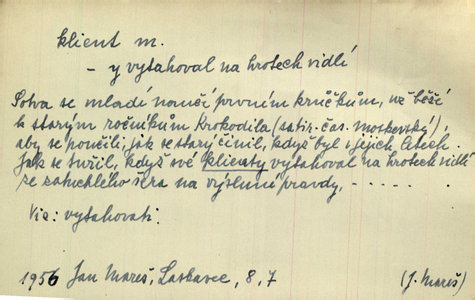 klient m.
- y vytahoval na hrotech vidlí
Sotva se mladí naučí prvním krůčkům, už běží
k starým ročníkům Krokodila (satir. čas. moskevský),
aby se poučili, jak se starý činil, když byl v jejich letech.
Jak se tvářil, když své klienty vytahoval na hrotech vidlí
ze zatuchlého šera na výsluní pravdy, - - - - -
Viz: vytahovati.
1956 Jan Mareš, Laskavec, 8, 7 (J. Mareš)